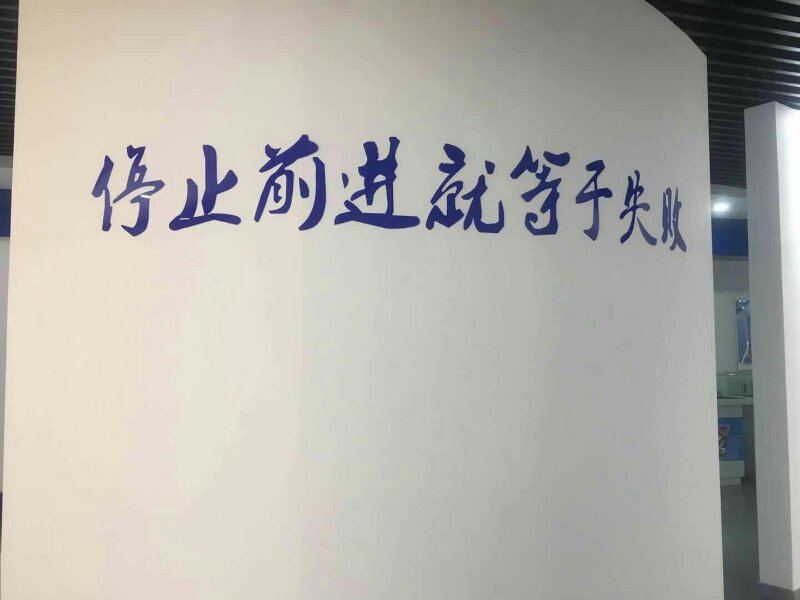 停止前进就等于失败